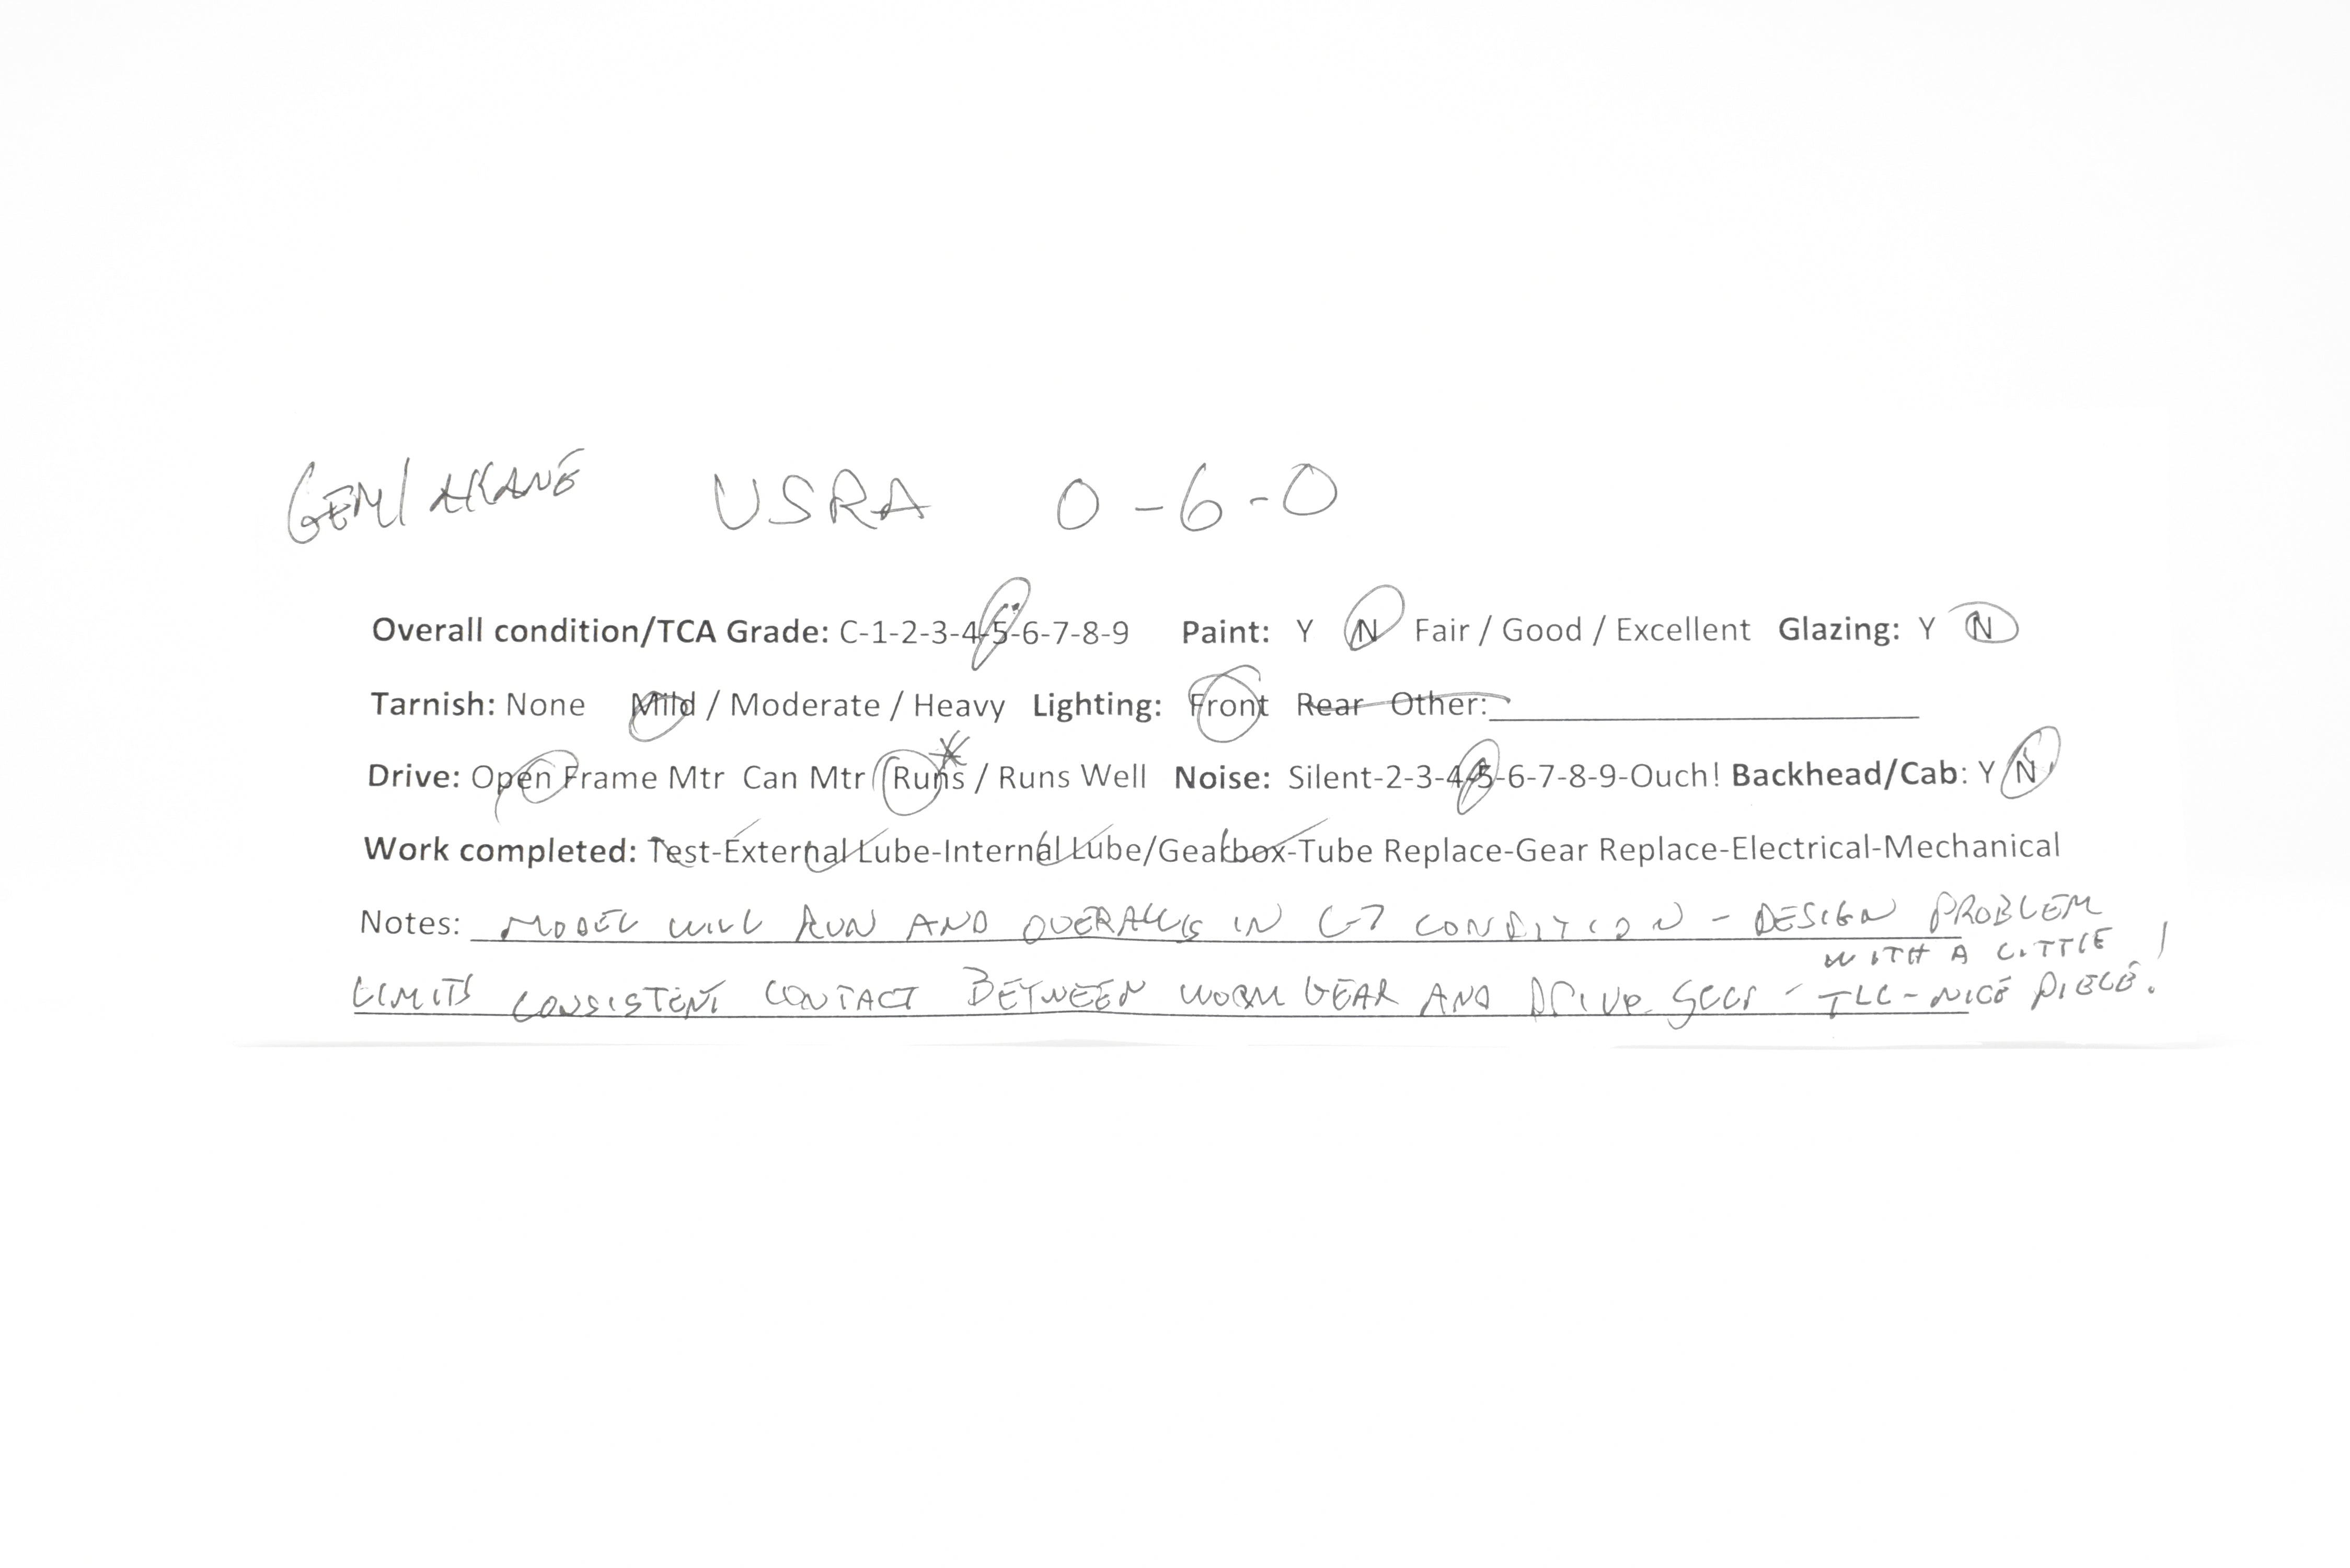 GEM/AKANE USRA 0-6-0
Overall condition/TCA Grade: C-1-2-3-4-5-6-7-8-9 Paint: Y N Fair / Good / Excellent Glazing: Y N
Tarnish: None Mild / Moderate / Heavy Lighting: Front Rear Other:
Drive: Open Frame Mtr Can Mtr Runs* / Runs Well Noise: Silent-2-3-4-5-6-7-8-9-Ouch! Backhead/Cab: Y N
Work completed: Test-External Lube-Internal Lube/Gearbox-Tube Replace-Gear Replace-Electrical-Mechanical
Notes: MODEL WILL RUN AND OVERALL IS IN C-7 CONDITION - DESIGN PROBLEM
LIMITS CONSISTENT CONTACT BETWEEN WORM GEAR AND DRIVE - WITH A LITTLE
TLC - NICE PIECE!